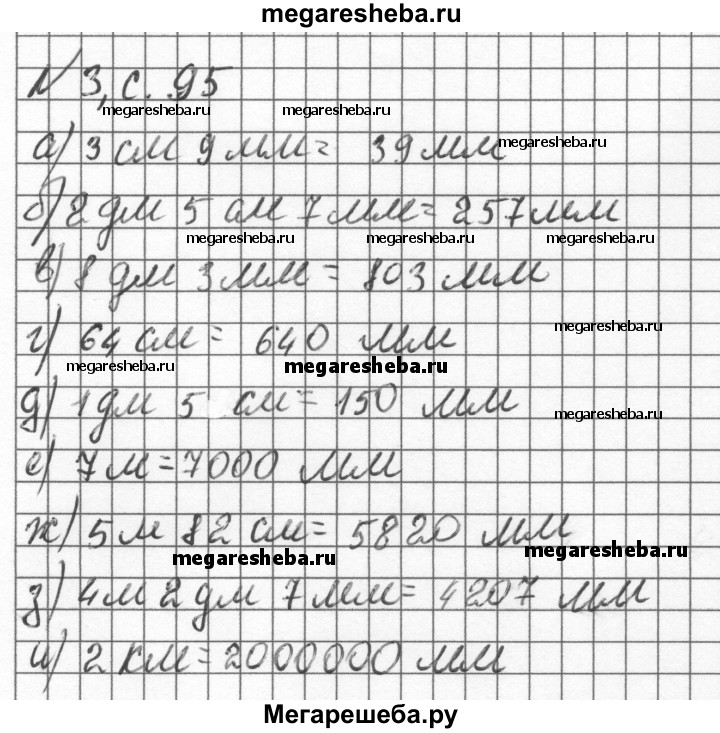 megaresheba.ru
№ 3, с. 95
megaresheba.ru megaresheba.ru
а) 3 см 9 мм = 39 мм
megaresheba.ru
б) 2 дм 5 см 7 мм = 257 мм
megaresheba.ru megaresheba.ru megaresheba.ru
в) 8 дм 3 мм = 803 мм
megaresheba.ru
г) 64 см = 640 мм
megaresheba.ru megaresheba.ru
д) 1 дм 5 см = 150 мм
megaresheba.ru
е) 7 м = 7000 мм
ж) 5 м 82 см = 5820 мм
megaresheba.ru megaresheba.ru
з) 4 м 2 дм 7 мм = 4207 мм
и) 2 км = 2000000 мм
Мегарешеба.ру